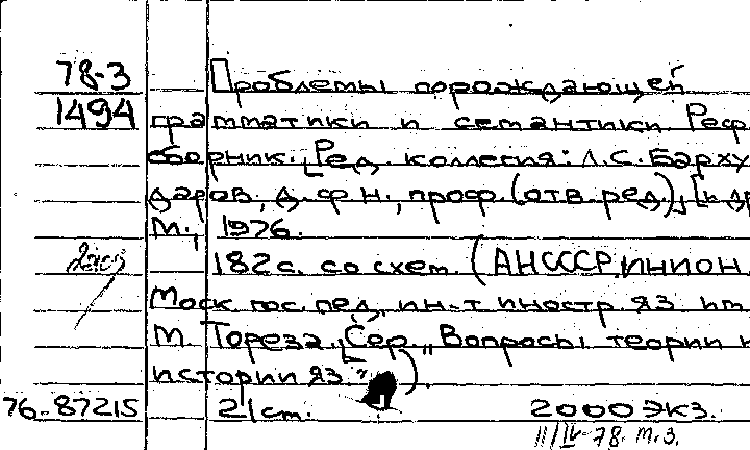 78-3 Проблемы порождающей
1494 грамматики и семантики Реф.
сборник. [Ред. коллегия: Л.С. Барху
даров, д.ф.н., проф. (отв. ред.), [и др
М., 1976.
182 с. со схем. (АН СССР, ИНИОН
Моск. гос. пед. ин-т иностр. яз. им
М. Тореза, [Сер. „Вопросы теории и
истории яз.").
76-87215 21 cm. 2000 экз.
11/IV-78. м.з.